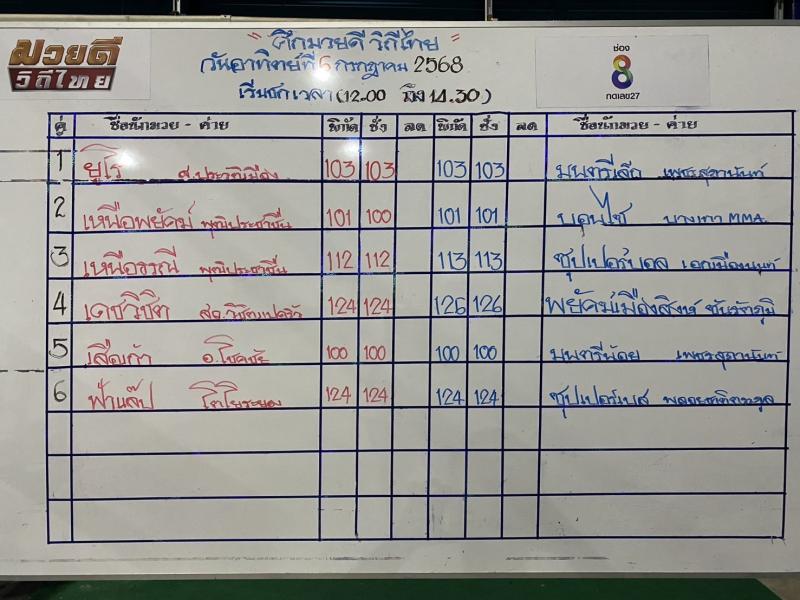 มวยดี
วิถีไทย
" ศึกมวยดี วิถีไทย "
วันอาทิตย์ที่ 6 กรกฎาคม 2568
เริ่มชกเวลา (12.00 ถึง 14.30)
ช่อง
8
กดเลข27
คู่ ชื่อนักมวย - ค่าย พิกัด ชั่ง ลด พิกัด ชั่ง ลด ชื่อนักมวย - ค่าย
1 ยูโร 103 103 103 103 มนตรีเล็ก เพชรสุภานันท์
2 เหนือพยัคฆ์ พุฒิประชาชื่น 101 100 101 101 บางเทา MMA.
3 เหนือธรณี พุฒิประชาชื่น 112 112 113 113 ซุปเปอร์บอล เอกเมืองนนท์
4 เดชวิชิต 124 124 126 126 พยัคฆ์เมืองสิงห์ ชัยรัตภูมิ
5 เสือเก้า อ.โชคชัย 100 100 100 100 มนตรีน้อย เพชรสุภานันท์
6 ฟ้าแล๊ป โตโยระยอง 124 124 124 124 ซุปเปอร์เบส